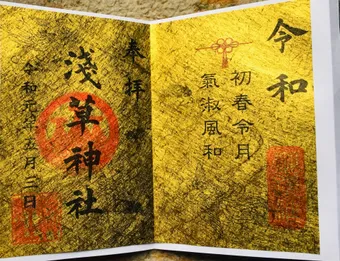 令和
初春令月
氣淑風和
奉拝
淺草神社
令和元年五月三日